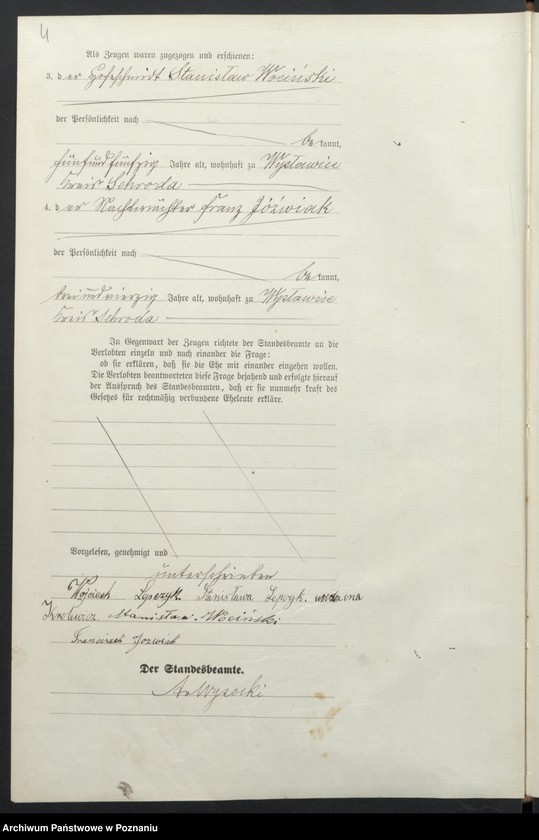 4
Als Zeugen waren zugezogen und erschienen:
3. der Hofschmidt Stanisław Wociński
der Persönlichkeit nach
bekannt,
fünfundfünfzig Jahre alt, wohnhaft zu Wysławice
Kreis Schroda
4. der Nachtwächter Franz Jóźwiak
der Persönlichkeit nach
bekannt,
dreiundvierzig Jahre alt, wohnhaft zu Wysławice
Kreis Schroda
In Gegenwart der Zeugen richtete der Standesbeamte an die
Verlobten einzeln und nach einander die Frage:
ob sie erklären, daß sie die Ehe mit einander eingehen wollen.
Die Verlobten beantworteten diese Frage bejahend und erfolgte hierauf
der Ausspruch des Standesbeamten, daß er sie nunmehr kraft des
Gesetzes für rechtmäßig verbundene Eheleute erkläre.
Vorgelesen, genehmigt und
unterschrieben
Wojciech Lepczyk Stanisława Lepczyk
Stanisław Wociński
Der Standesbeamte.
A. Wysocki
Archiwum Państwowe w Poznaniu